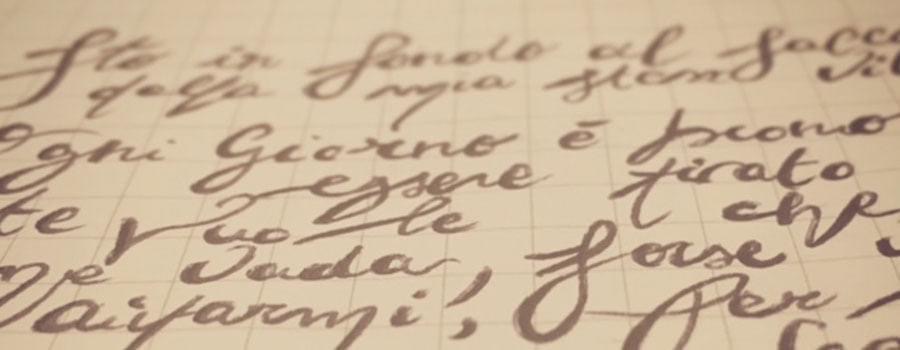 Sto in fondo al sacco
della mia stan
Ogni Giorno è
essere tirato
te Vuole che
Ne Vada, forse
aiutarmi, Per